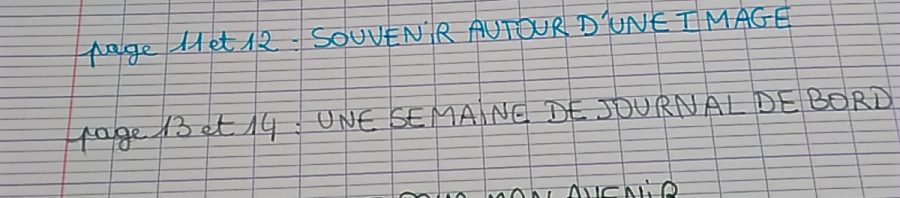 page 11 et 12 : SOUVENIR AUTOUR D'UNE IMAGE
page 13 et 14 : UNE SEMAINE DE JOURNAL DE BORD
MON AVENIR